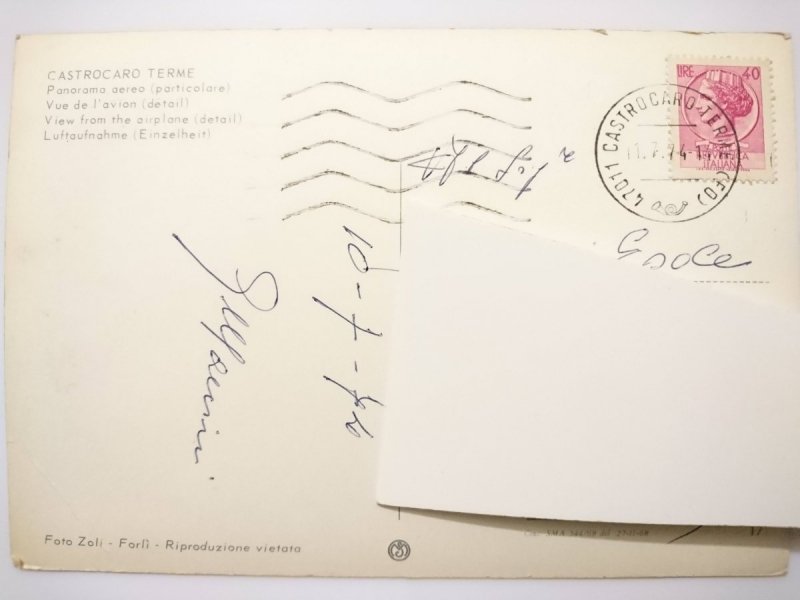 CASTROCARO TERME
Panorama aereo (particolare)
Vue de l'avion (detail)
View from the airplane (detail)
Luftaufnahme (Einzelheit)
LIRE 40
REPUBBLICA
ITALIANA
47011 CASTROCARO TERME (FO)
10-7-74
Foto Zoli - Forlì - Riproduzione vietata